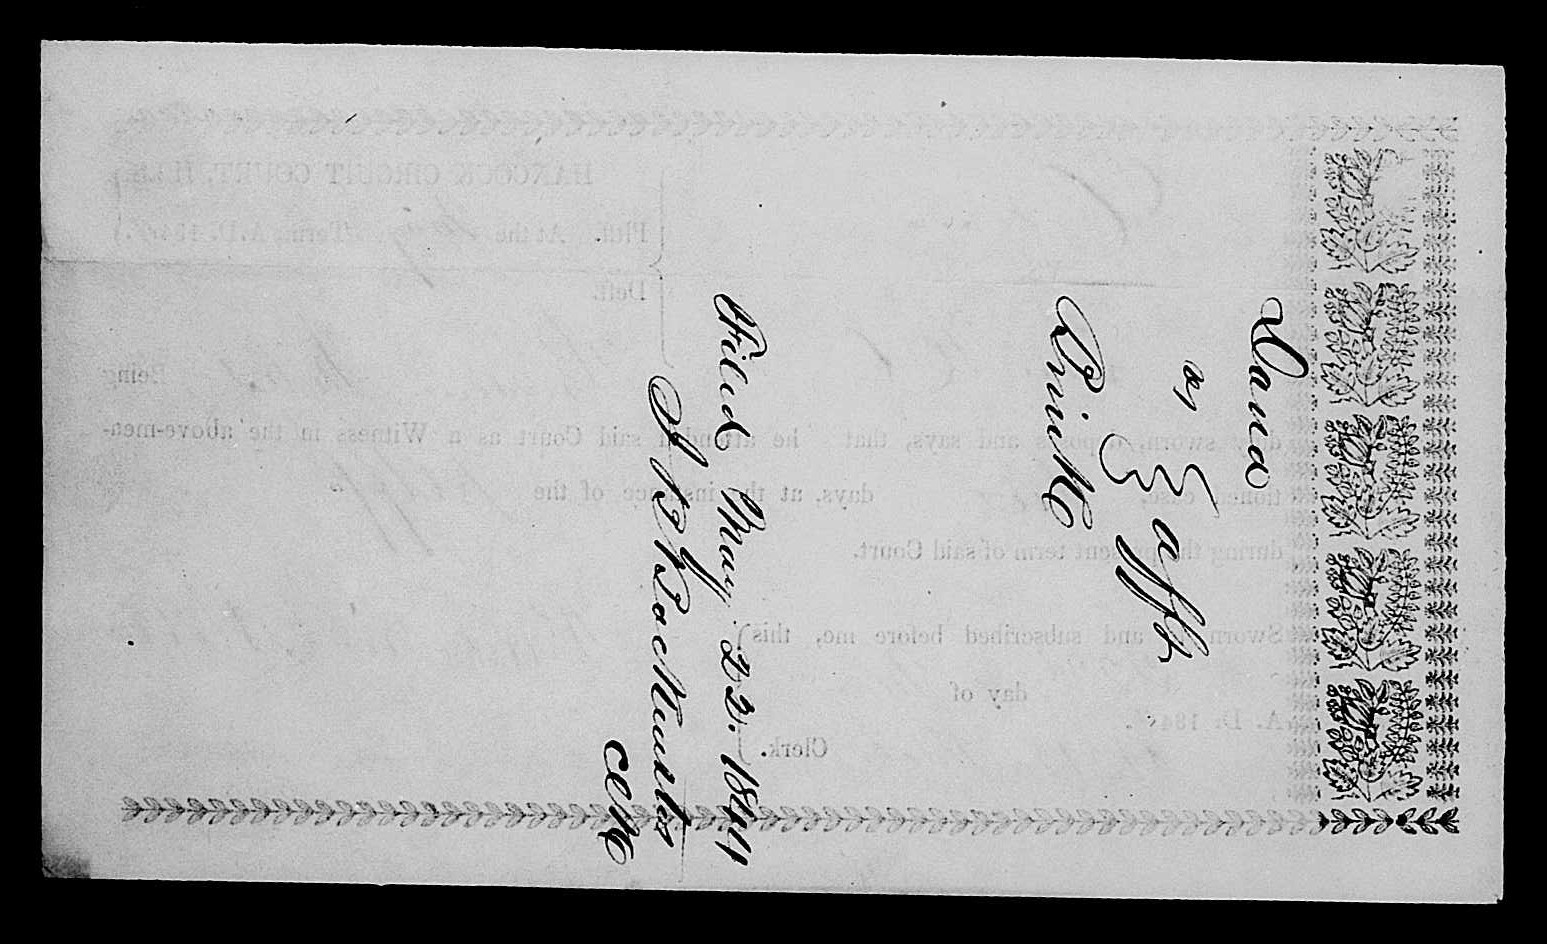 Dana
vs } afft,
Brink
Filed May 22. 1844
J B Backenstos
Clk
HANCOCK CIRCUIT COURT, ILLS.
Plff. At the May Term, A.D. 184
Deft.
Being
duly sworn, deposes and says, that he attended said Court as a Witness in the above-men-
tioned case, days, at the instance of the
during the present term of said Court.
Sworn to and subscribed before me, this
day of
A. D. 184
Clerk.